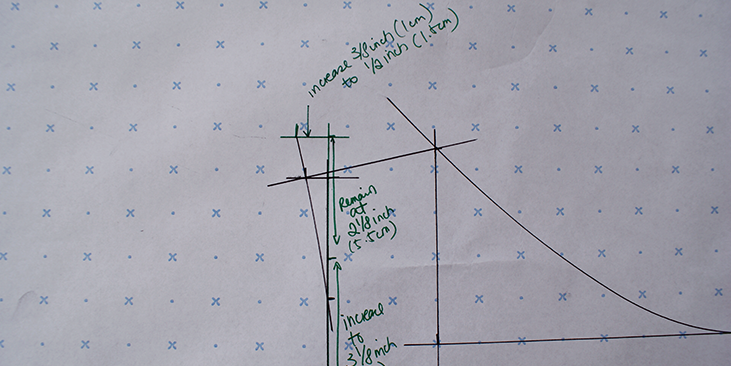 increase 3/8inch (1cm)
to 1/2inch (1.5cm)
Remain
at
2 1/8inch
(5.5cm)
increase
to
3 1/8inch